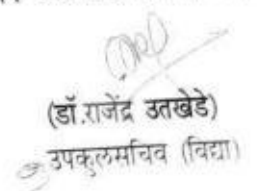 (डॉ.राजेंद्र उतखेडे)
उपकुलसचिव (विद्या)